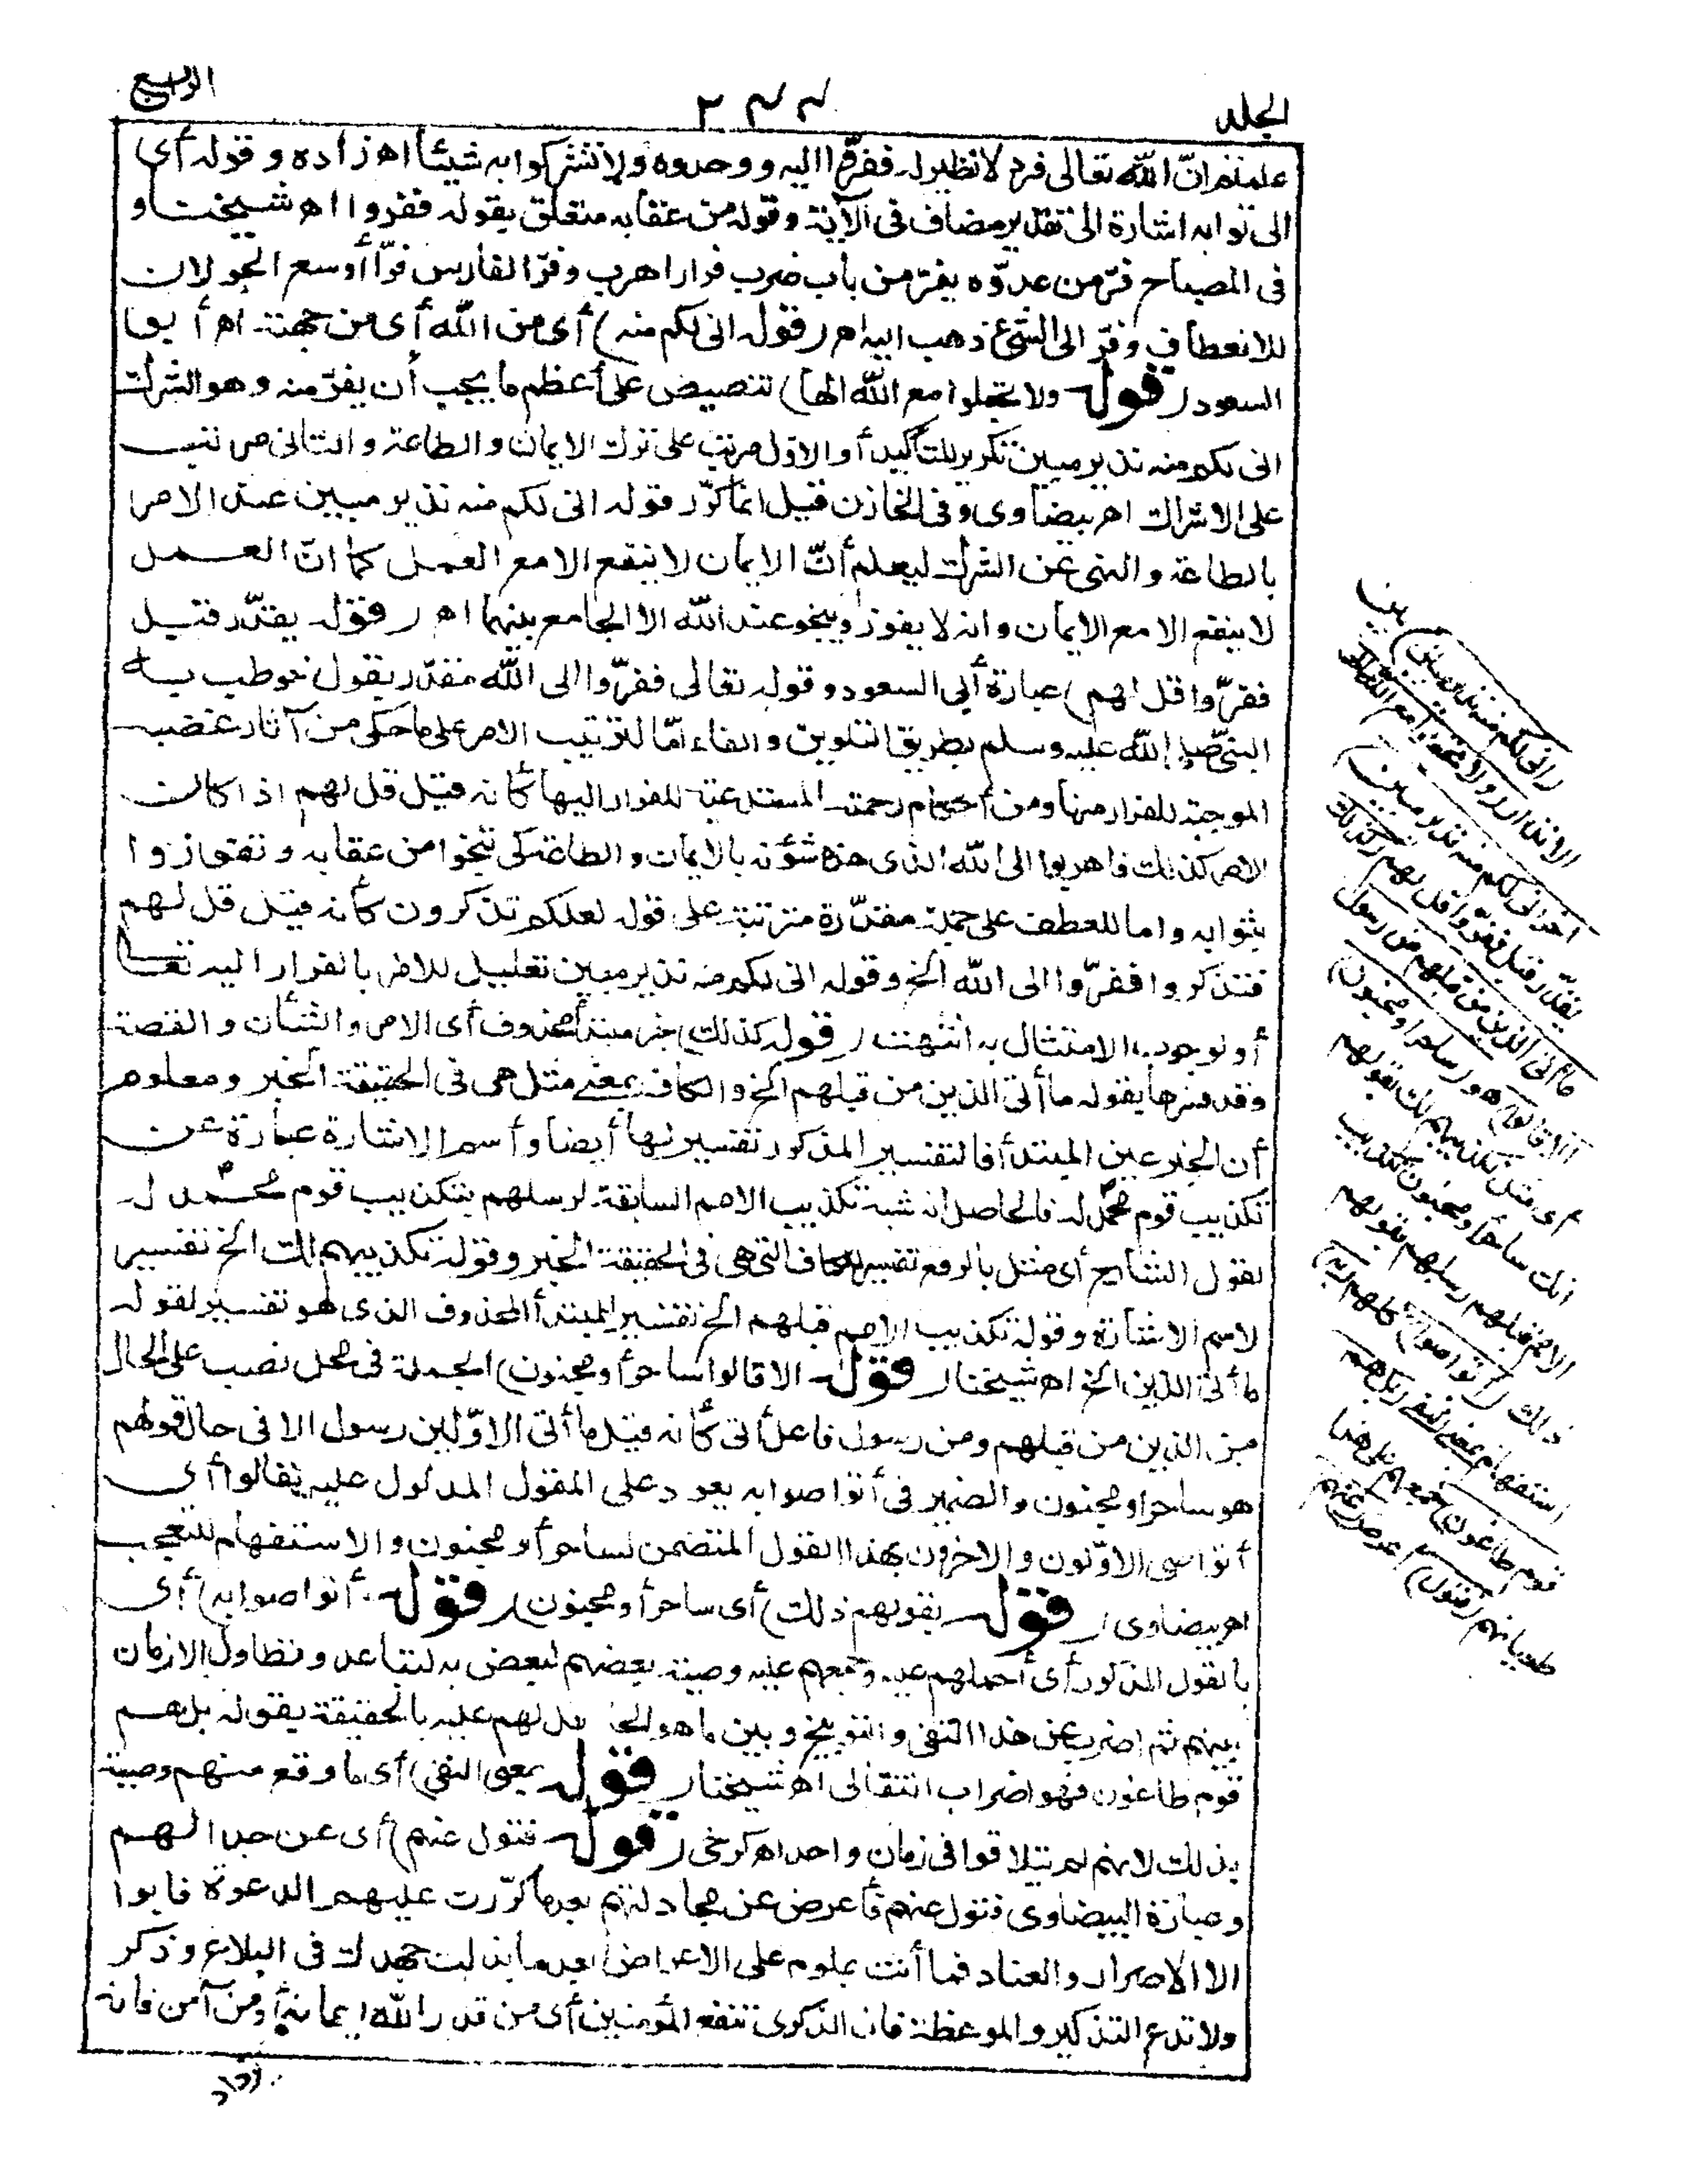 الجلد
٢٣٣
الرابع
علمتم انّ الله تعالى فرد لا نظير له ففرّوا اليه ووحدوه ولا تشركوا به شيئا اه زاده وقوله أى
الى ثوابه اشارة الى تقدير مضاف فى الآية وقوله من عقابه متعلق بقوله ففروا اه شيخنا و
فى المصباح فرّ من عدوّه يفرّ من باب ضرب فرارا هرب وفرّ الفارس فرّا أوسع الجولان
للانعطاف وفرّ الى الشئ ذهب اليه اه (قوله انى لكم منه) أى من الله أى من جهته اه أبو
السعود (قوله ولا تجعلوا مع الله الها) تنصيص على أعظم ما يجب أن يفرّ منه وهو الشرك
انى لكم منه نذير مبين تكرير للتأكيد أو الاوّل مرتب على ترك الايمان والطاعة والثانى مرتب
على الاشراك اه بيضاوى وفى الخازن قيل انما كرّر قوله انى لكم منه نذير مبين عند الامر
بالطاعة والنهى عن الشرك ليعلم أنّ الايمان لا ينفع الا مع العمل كما انّ العمل
لا ينفع الا مع الايمان وانه لا يفوز وينجو عند الله الا الجامع بينهما اه (قوله يقدّر قبل
ففرّوا قل لهم) عبارة أبى السعود وقوله تعالى ففرّوا الى الله مقدّر بقول خوطب به
النبىّ صلى الله عليه وسلم بطريق التلوين والفاء امّا لترتيب الامر على ما حكى من آثار غضبه
الموجبة للفرار منها ومن أحكام رحمته المستدعية للفرار اليها كأنه قيل قل لهم اذا كان
الامر كذلك فاهربوا الى الله الذى هذه شؤنه بالايمان والطاعة كى تنجوا من عقابه وتفوزوا
بثوابه واما للعطف على جملة مقدّرة مترتبة على قوله لعلكم تذكرون كأنه قيل قل لهم
فتذكروا ففرّوا الى الله الخ وقوله انى لكم منه نذير مبين تعليل للامر بالفرار اليه تعالى
أو لوجوب الامتثال به انتهت (قوله كذلك) خبر مبتدأ محذوف أى الامر والشأن والقصة
وقد فسرها بقوله ما أتى الذين من قبلهم الخ والكاف بمعنى مثل هى فى الحقيقة الخبر ومعلوم
أن الخبر عين المبتدأ فالتفسير المذكور تفسير لها أيضا وأسم الاشارة عبارة عن
تكذيب قوم محمّد له فالحاصل انه شبه تكذيب الامم السابقة لرسلهم بتكذيب قوم محمّد له
بقول الشارح أى مثل بالرفع تفسير للكاف التى هى فى الحقيقة الخبر وقوله تكذيبهم لك الخ تفسير
لاسم الاشارة وقوله تكذيب الامم قبلهم الخ تفسير للمبتدأ المحذوف الذى هو تفسير لقوله
ما أتى الذين الخ اه شيخنا (قوله الا قالوا ساحر أو مجنون) الجملة فى محل نصب على الحال
من الذين من قبلهم ومن رسول فاعل أتى كأنه قيل ما أتى الاوّلين رسول الا فى حال قولهم
هو ساحر أو مجنون والضمير فى أتواصوا به يعود على المقول المدلول عليه بقالوا أى
أتواصى الاوّلون والاخرون بهذا القول المتضمن لساحر أو مجنون والاستفهام للتعجب
اه بيضاوى (قوله بقولهم ذلك) أى ساحر أو مجنون (قوله أتواصوا به) أى
بالقول المذكور أى أحملهم عليه وجمعهم عليه وصية بعضهم لبعض به لتباعد وتطاول الازمان
بينهم ثم اضرب عن هذا النفى والتوبيخ وبين ما هو الحامل لهم عليه بالحقيقة بقوله بل هم
قوم طاغون فهو اضراب انتقالى اه شيخنا (قوله بمعنى النفى) أى ما وقع منهم وصية
بذلك لانهم لم يتلاقوا فى زمان واحد اه كرخى (قوله فتول عنهم) أى عن جدالهم
وعبارة البيضاوى فتول عنهم فأعرض عن مجادلتهم بعد ما كرّرت عليهم الدعوة فابوا
الا الاصرار والعناد فما أنت بملوم على الاعراض بعد ما بذلت جهدك فى البلاغ وذكر
ولا تدع التذكير والموعظة فان الذكرى تنفع المؤمنين أى من قدر الله ايمانه أو من آمن فانه
يزداد
بين
(انى لكم منه نذير مبين)
الانذار (ولا تجعلوا مع الله الها
آخر انى لكم منه نذير مبين)
يقدّر قبل ففرّوا قل لهم (كذلك
ما أتى الذين من قبلهم من رسول
الا قالوا) هو (ساحر أو مجنون)
أى مثل تكذيبهم لك بقولهم
انك ساحر أو مجنون تكذيب
الامم قبلهم رسلهم بقولهم
ذلك (أتواصوا) كلهم (به)
استفهام بمعنى النفى (بل هم
قوم طاغون) جمعهم على هذا
طغيانهم (فتول) أعرض (عنهم